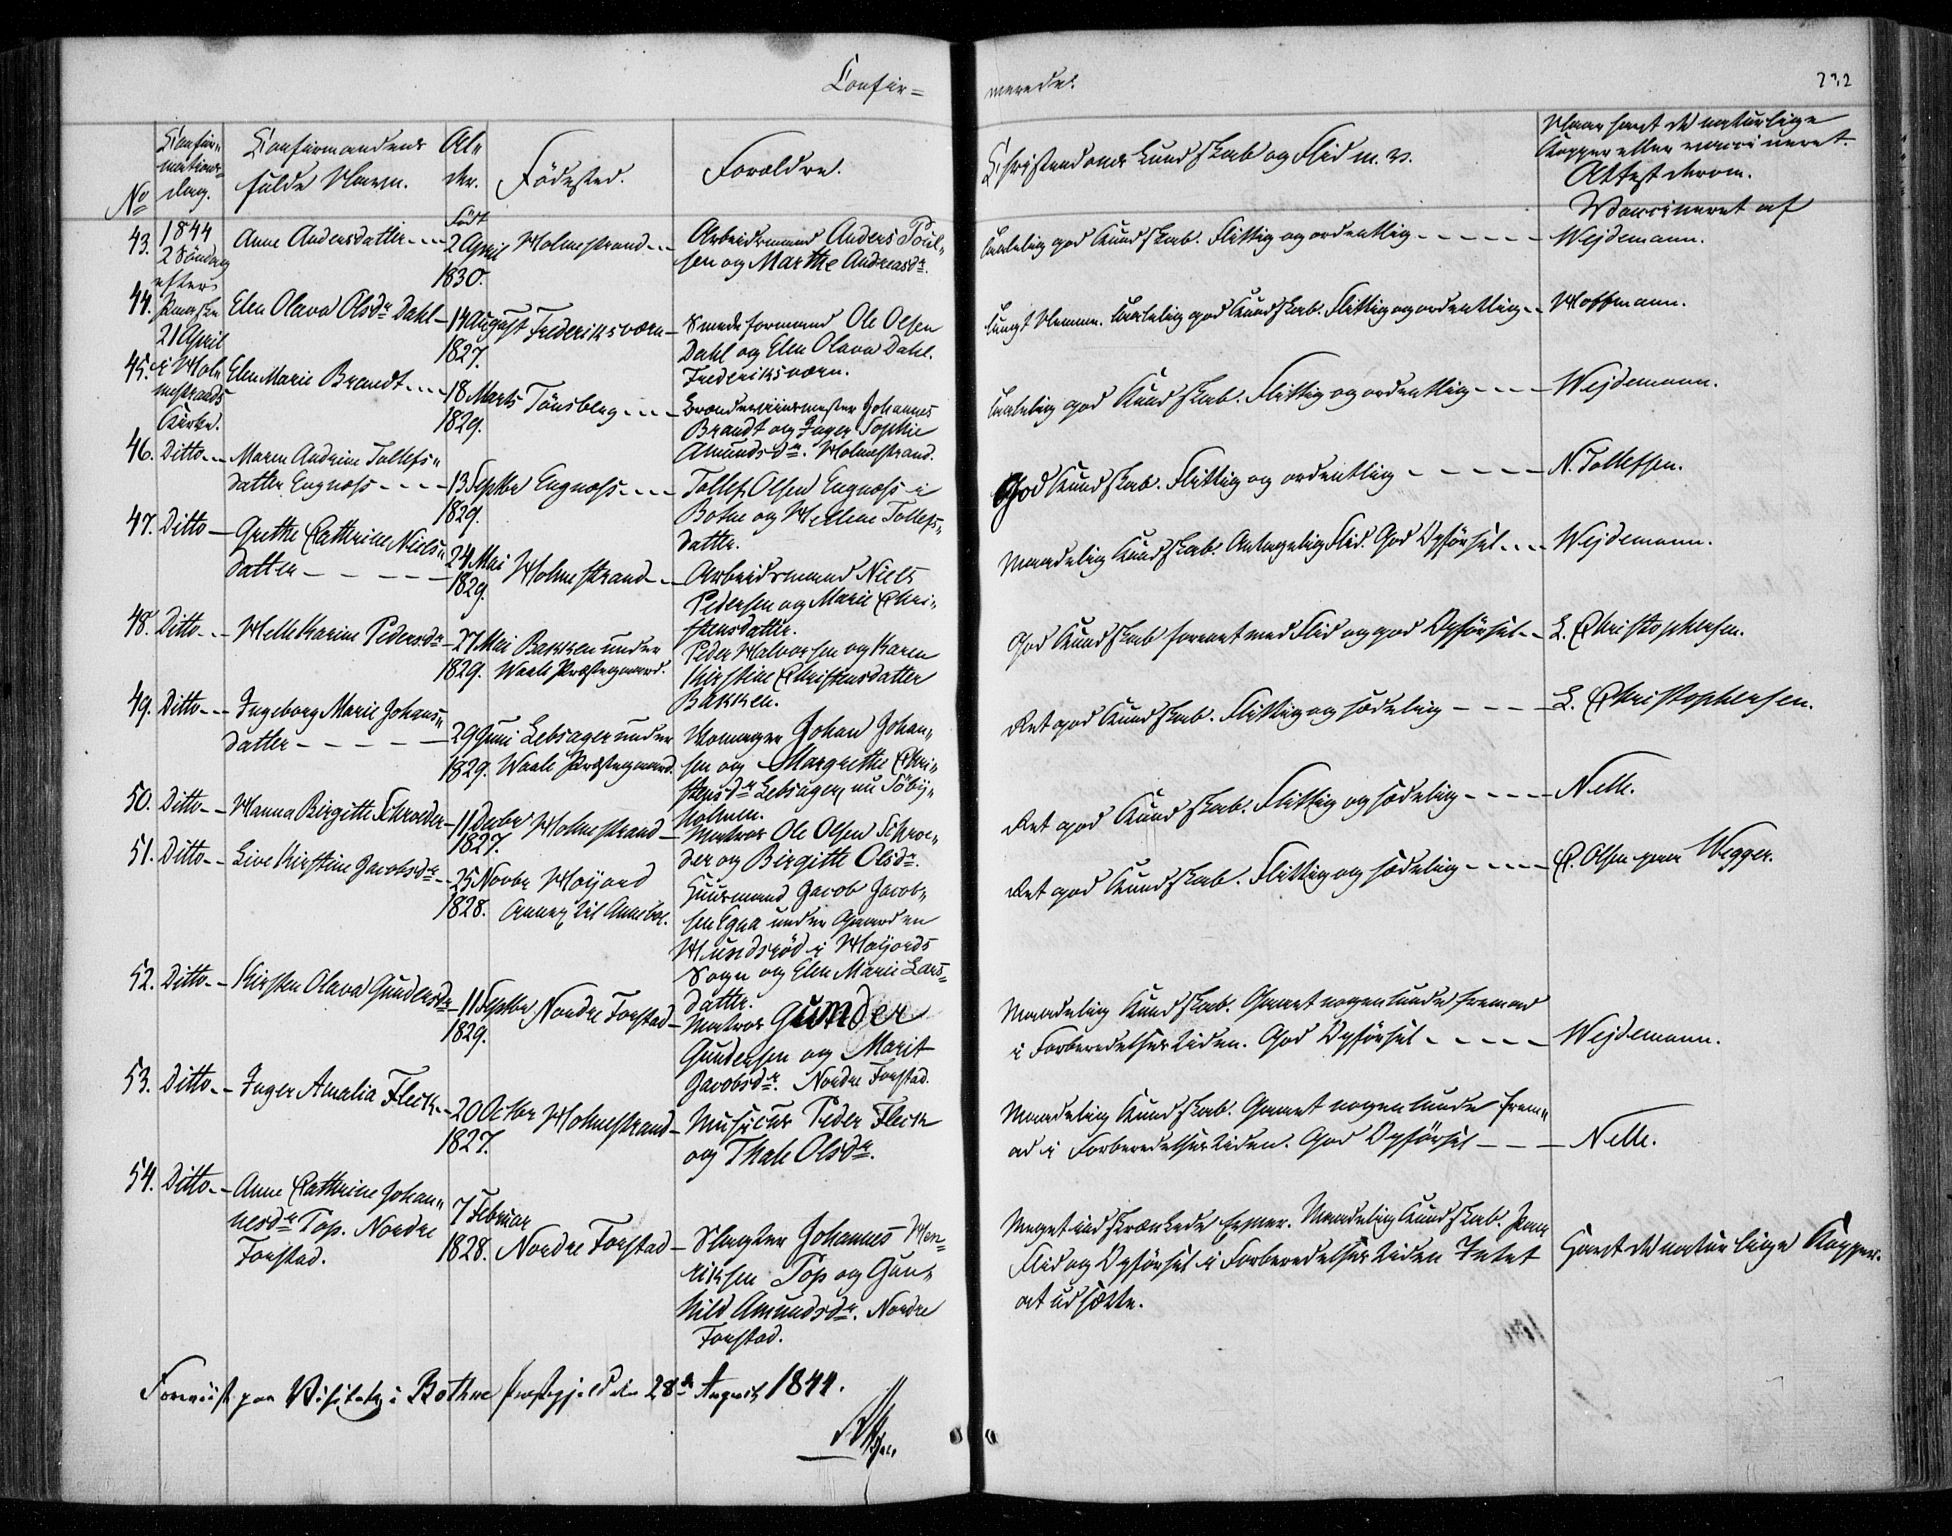 Confir=
merede.
232
No
Confir-
mations-
dag.
Confirmandens
fulde Navn.
Al-
der.
Fødested.
Forældre.
Christendoms Kundskab og Flid m. v.
Naar havt de naturlige
Kopper eller vaccineret.
Attest derom.
43.
1844
2 Søndag
efter
Paaske
21 April
i Hol-
mestrands
Kirke.
Anne Andersdatter
Født
2 April
1830.
Holmestrand
Arbeidsmand Anders Poul-
sen og Marthe Andreasdr.
Taalelig god Kundskab. Flittig og ordentlig
Vaccineret af
Wejdemann.
44.
Elen Olava Olsdr Dahl
14 August
1827.
Frederiksværn
Smedeformand Ole Olsen
Dahl og Elen Olava Dahl.
Frederiksværn.
Taalelig god Kundskab. Flittig og ordentlig
Hoffmann.
45.
Elen Marie Brandt
18 Marts
1829.
Tønsberg
Johannes
Brandt og Inger Sophie
Amundsdr. Holmestrand.
Taalelig god Kundskab. Flittig og ordentlig
Wejdemann.
46. Ditto
Maren Andrine Tollefs-
datter Engnæss
13 Septbr
1829.
Engnæss
Tollef Olsen Engnæss i
Bothne og Helene Tollefs-
datter.
God Kundskab. Flittig og ordentlig
N. Tollefsen.
47. Ditto
Grethe Cathrine Niels-
datter
24 Mai
1829.
Holmestrand
Arbeidsmand Niels
Pedersen og Marie Chri-
stensdatter.
Maadelig Kundskab. Antagelig Flid. God Opførsel
Wejdemann.
48. Ditto
Helle Karine Pedersdr
27 Mai
1829.
Bakken under
Waale Præstegaard.
Peder Halvorsen og Karen
Kirstine Christensdatter
Bakken.
God Kundskab forenet med Flid og god Opførsel
L. Christophersen.
49. Ditto
Ingeborg Marie Johans-
datter
29 Juni
1829.
Lebsager under
Waale Præstegaard.
Johan Johan-
sen og Margrethe Chri-
stensdr Lebsager, nu Føby-
holmen.
Ret god Kundskab. Flittig og sædelig
L. Christophersen.
50. Ditto
Hanna Birgitte Schrøder
11 Decbr
1827.
Holmestrand
Matros Ole Olsen Schrø-
der og Birgitte Olsdr.
Ret god Kundskab. Flittig og sædelig
Nelle.
51. Ditto
Live Kirstine Jacobsdr
25 Novbr
1828.
Høijord
Annex til Andebo.
Huusmand Jacob Jacob-
sen Egna under Gaarden
Hundsrød i Høijords
Sogn og Elen Marie Lars-
datter.
Ret god Kundskab. Flittig og sædelig
C. Olsen paa Wegger.
52. Ditto
Kirsten Olava Gundersdr
11 Septbr
1829.
Nordre Forstad
Matros Gunder
Gundersen og Marit
Jacobsdr. Nordre Forstad.
Maadelig Kundskab. Gaaet nogenlunde fremad
i Forberedelsestiden. God Opførsel
Wejdemann.
53. Ditto
Inger Amalia Fleck
20 Octbr
1827.
Holmestrand
Musicus Peder Fleck
og Thale Olsdr.
Maadelig Kundskab. Gaaet nogenlunde frem-
ad i Forberedelsestiden. God Opførsel
Nelle.
54. Ditto
Anne Cathrine Johan-
nesdr Top. Nordre
Forstad.
7 Februar
1828.
Nordre Forstad
Slagter Johannes Hen-
riksen Top og Gun-
hild Amundsdr. Nordre
Forstad.
Meget indskrænkede Evner. Maadelig Kundskab. Paa
Flid og Opførsel i Forberedelsestiden Intet
at udsætte.
Havt de naturlige Kopper.
Foreviist paa Visitats i Bothne Præstegjeld den 28de August 1844.